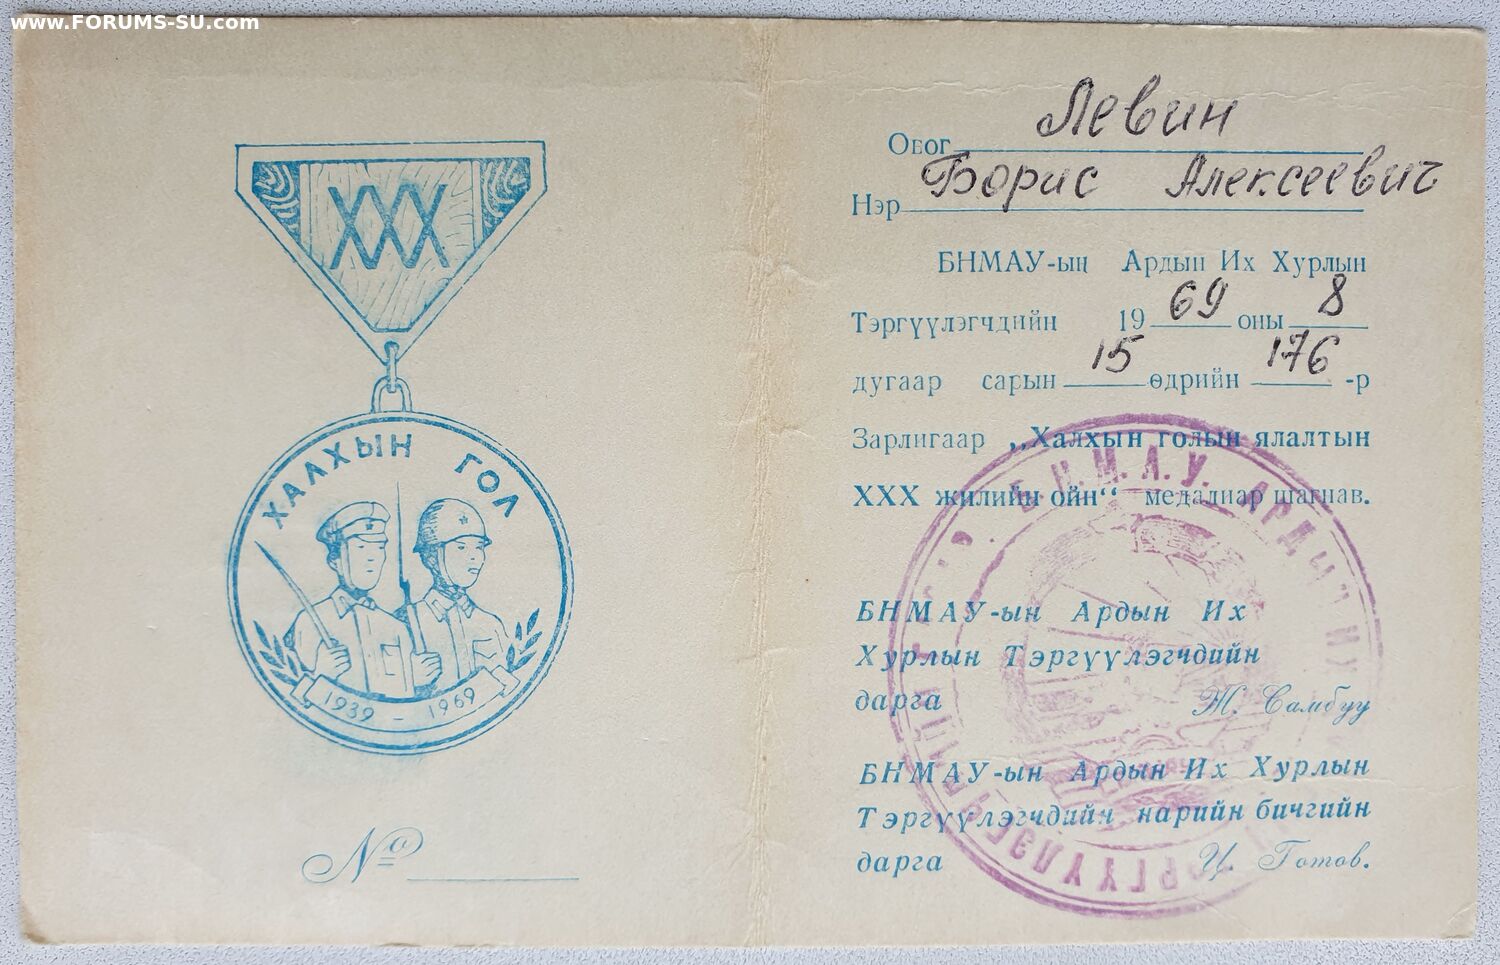 www.FORUMS-SU.com
XXX
ХАЛХЫН ГОЛ
1939 - 1969
№
Овог Левин
Нэр Борис Алексеевич
БНМАУ-ын Ардын Их Хурлын
Тэргүүлэгчдийн 1969 оны 8
дугаар сарын 15 өдрийн 176 -р
Зарлигаар „Халхын голын ялалтын
XXX жилийн ойн“ медалиар шагнав.
БНМАУ-ын Ардын Их
Хурлын Тэргүүлэгчдийн
дарга Ж. Самбуу
БНМАУ-ын Ардын Их Хурлын
Тэргүүлэгчдийн нарийн бичгийн
дарга Ц. Готов.
Б.Н.М.А.У. АРДЫН ИХ